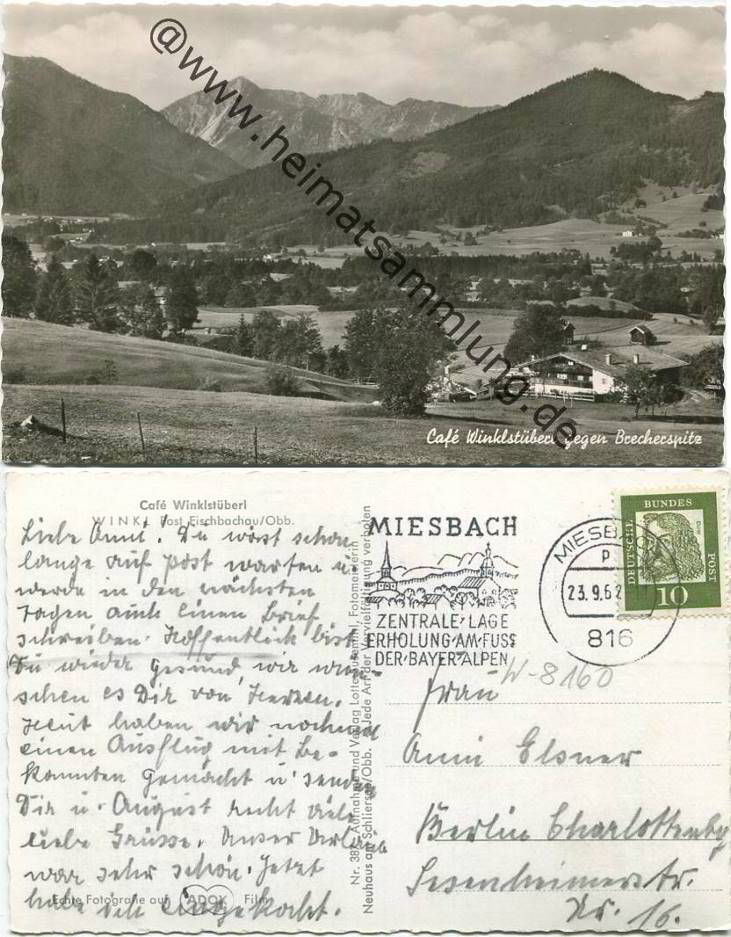 @www.heimatsammlung.de
Café Winklstüberl gegen Brecherspitz
Café Winklstüberl
WINKL Post Fischbachau/Obb.
Liebe Anni! Du wirst schon
lange auf Post warten u.
werde in den nächsten
Tagen auch einen Brief
schreiben. Hoffentlich bist
Du wieder gesund, wir wün-
schen es Dir von Herzen.
Heut haben wir nochmal
einen Ausflug mit Be-
kannten gemacht u. senden
Dir u. August recht viele
liebe Grüsse. Unser Urlaub
war sehr schön. Jetzt
habe ich eingekocht.
Echte Fotografie auf ADOX Film
Nr. 38 Aufnahme und Verlag Lotte Fotomeisterin
Neuhaus am Schliersee/Obb. Jede Art der Vervielfältigung verboten
MIESBACH
ZENTRALE LAGE
ERHOLUNG AM FUSS
DER BAYER. ALPEN
MIESBACH
P
23.9.62
816
DEUTSCHE
BUNDES
POST
10
W-8160
Frau
Anni Elsner
Berlin Charlottenbg
Sesenheimerstr.
Nr. 16.